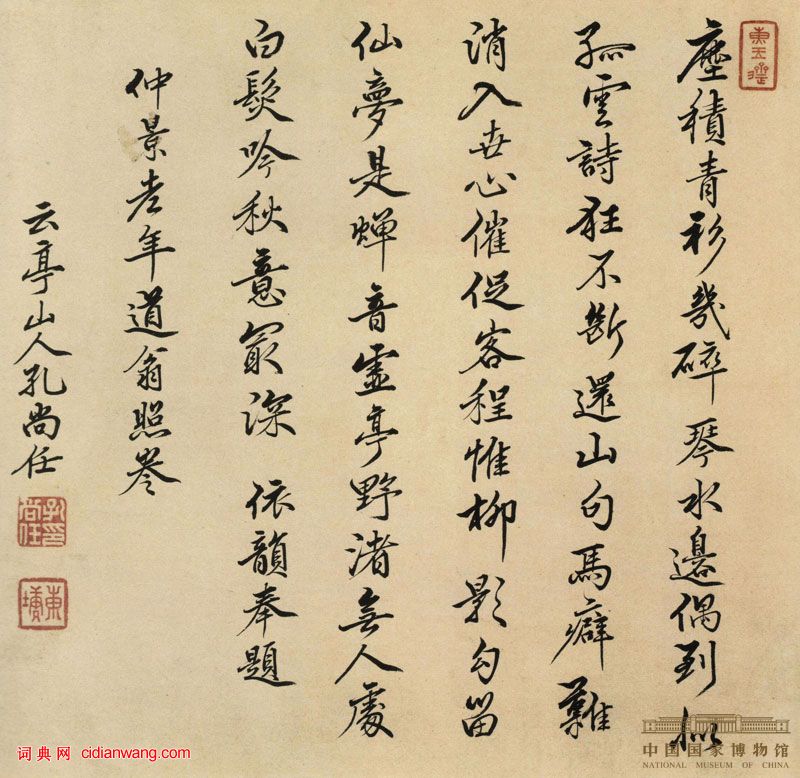 塵積青衫幾碎琴水邊偶到似
孤雲詩狂不斷還山句馬癖難
消入世心催促客程惟柳影勾留
仙夢是蟬音虛亭野渚無人處
白髮吟秋意最深 依韻奉題
仲景老年道翁照
云亭山人孔尚任
孔尚任印
東塘
词典网 cidianwang.com
中国国家博物馆
NATIONAL MUSEUM OF CHINA